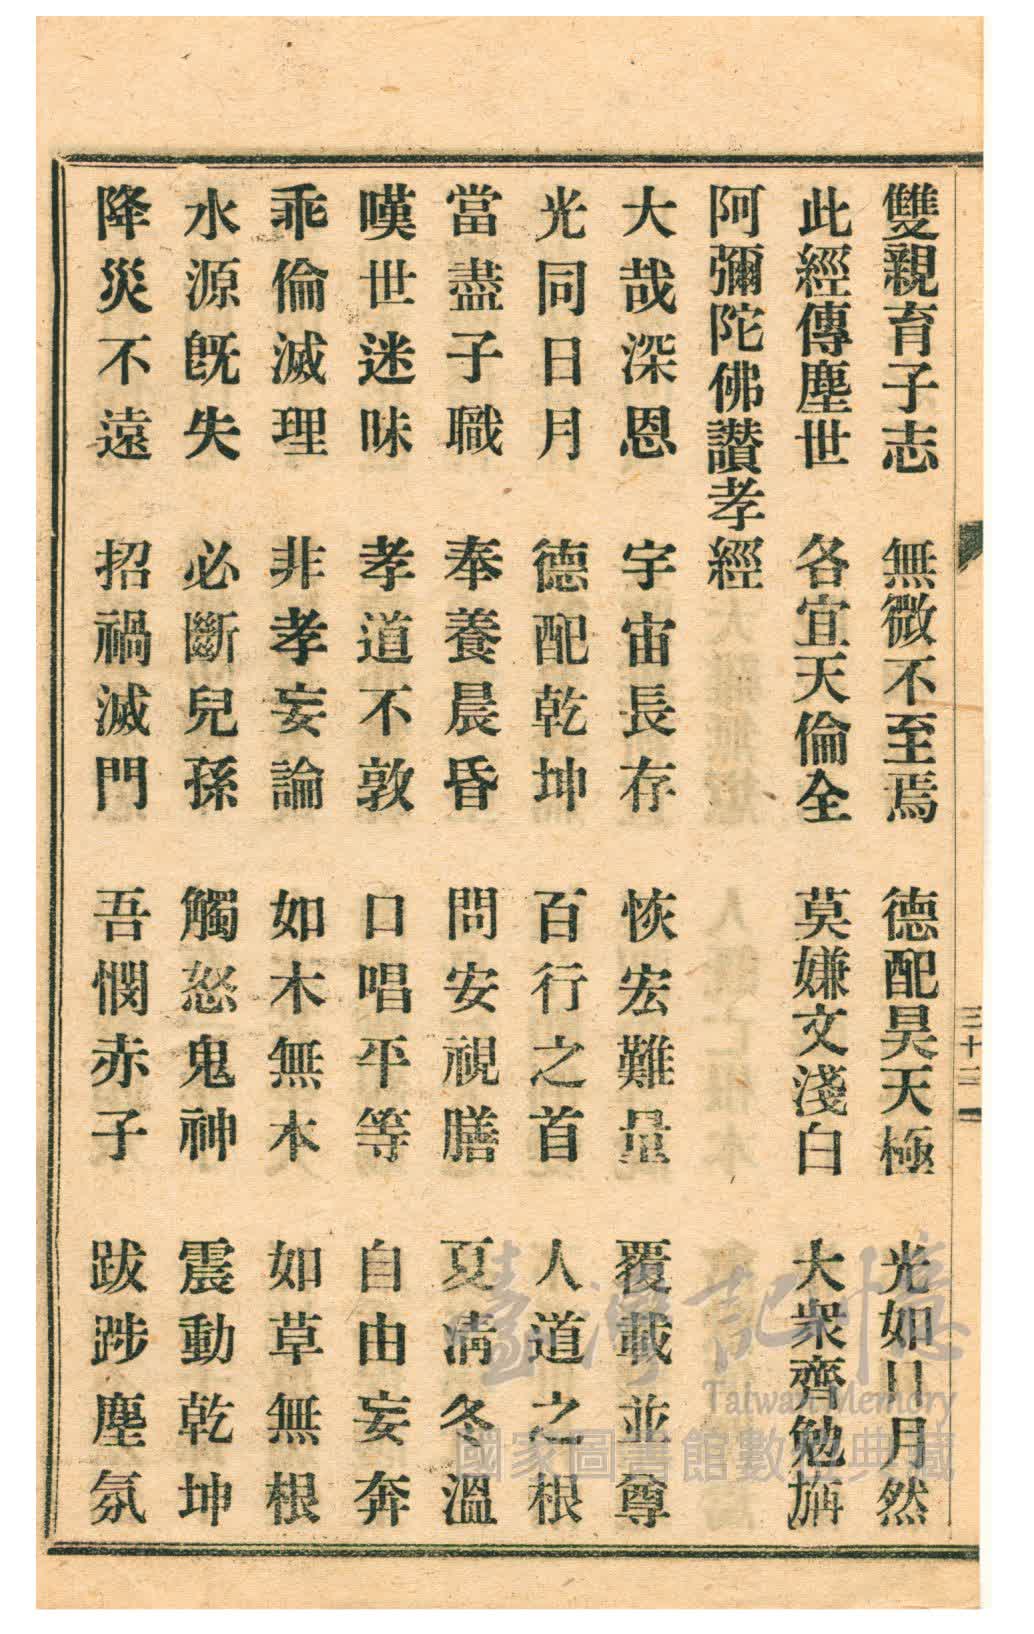 雙親育子志　無微不至焉　德配昊天極　光如日月然
此經傳塵世　各宜天倫全　莫嫌文淺白　大衆齊勉旃
阿彌陀佛讚孝經
大哉深恩　宇宙長存　恢宏難量　覆載並尊
光同日月　德配乾坤　百行之首　人道之根
當盡子職　奉養晨昏　問安視膳　夏凊冬溫
嘆世迷昧　孝道不敦　口唱平等　自由妄奔
乖倫滅理　非孝妄論　如木無本　如草無根
水源既失　必斷兒孫　觸怒鬼神　震動乾坤
降災不遠　招禍滅門　吾憫赤子　跋踄塵氛
三十二
臺灣記憶
Taiwan Memory
國家圖書館數位典藏